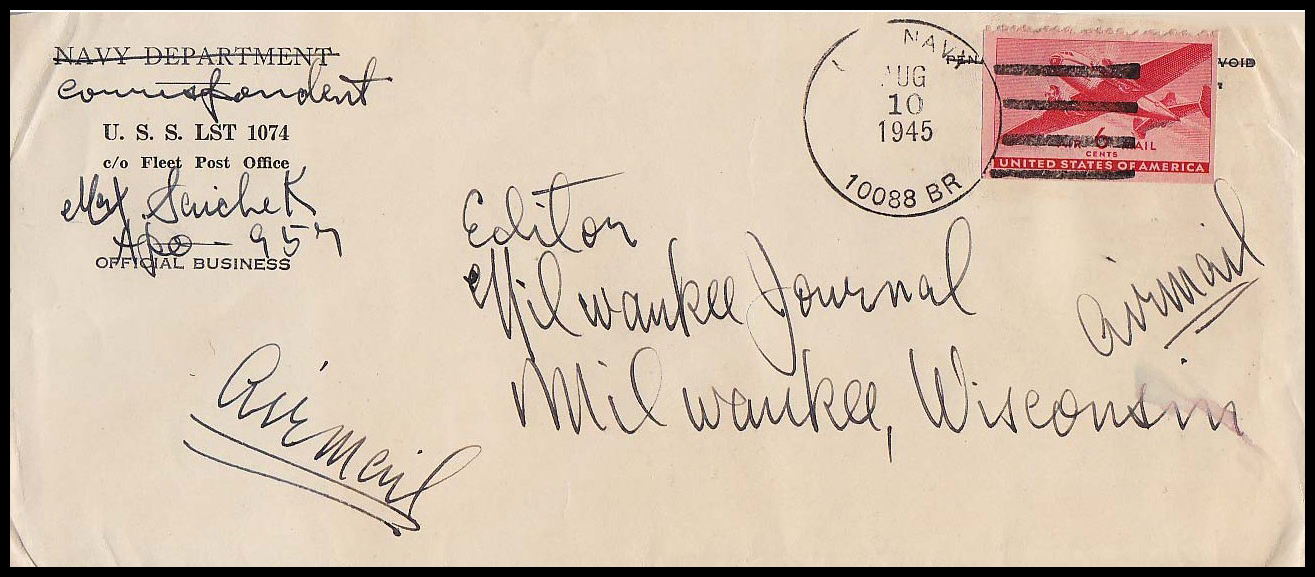 NAVY DEPARTMENT
Correspondent
U. S. S. LST 1074
c/o Fleet Post Office
Saichek
Apo - 957
OFFICIAL BUSINESS
NAVY
AUG
10
1945
10088 BR
VOID
6
AIR MAIL
CENTS
UNITED STATES OF AMERICA
Editor
Milwaukee Journal
Milwaukee, Wisconsin
Airmail
Airmail